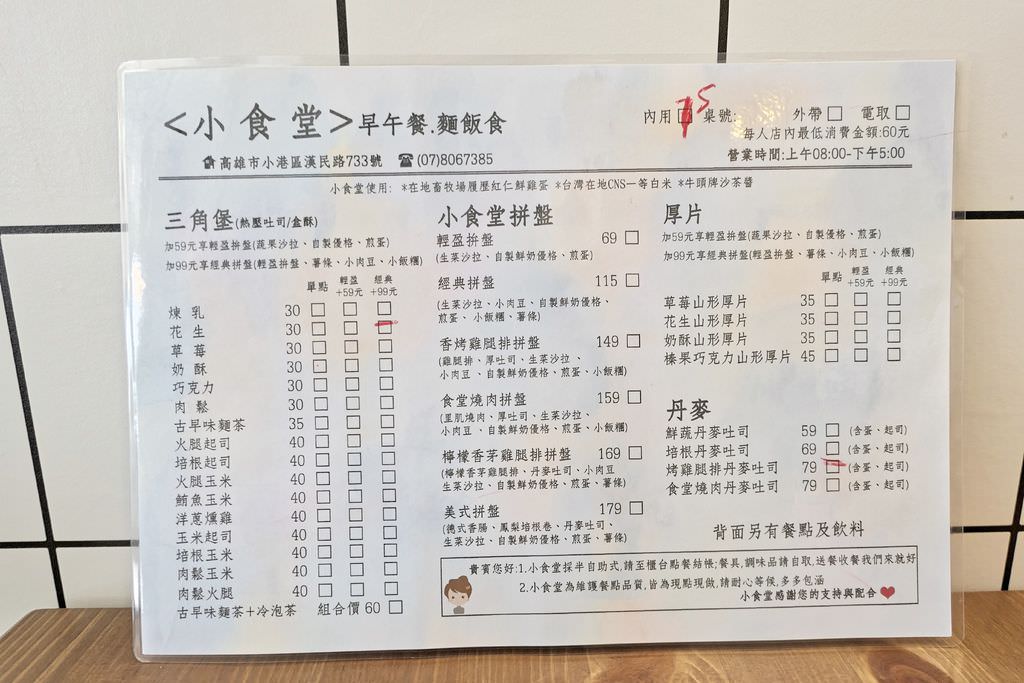 <小食堂>早午餐.麵飯食
內用□ 75 桌號: 外帶□ 電取□
每人店內最低消費金額:60元
高雄市小港區漢民路733號 ☎(07)8067385
營業時間:上午08:00-下午5:00
小食堂使用: *在地畜牧場履歷紅仁鮮雞蛋 *台灣在地CNS一等白米 *牛頭牌沙茶醬
三角堡(熱壓吐司/盒酥)
加59元享輕盈拚盤(蔬果沙拉、自製優格、煎蛋)
加99元享經典拼盤(輕盈拚盤、薯條、小肉豆、小飯糰)
單點 輕盈+59元 經典+99元
煉乳 30 □ □ □
花生 30 □ □ □
草莓 30 □ □ □
奶酥 30 □ □ □
巧克力 30 □ □ □
肉鬆 30 □ □ □
古早味麵茶 35 □ □ □
火腿起司 40 □ □ □
培根起司 40 □ □ □
火腿玉米 40 □ □ □
鮪魚玉米 40 □ □ □
洋蔥燻雞 40 □ □ □
玉米起司 40 □ □ □
培根玉米 40 □ □ □
肉鬆玉米 40 □ □ □
肉鬆火腿 40 □ □ □
古早味麵茶+冷泡茶 組合價 60 □
小食堂拼盤
輕盈拚盤 69 □
(生菜沙拉、自製鮮奶優格、煎蛋)
經典拼盤 115 □
(生菜沙拉、小肉豆、自製鮮奶優格、
煎蛋、小飯糰、薯條)
香烤雞腿排拼盤 149 □
(雞腿排、厚吐司、生菜沙拉、
小肉豆、自製鮮奶優格、煎蛋、小飯糰)
食堂燒肉拼盤 159 □
(里肌燒肉、厚吐司、生菜沙拉、
小肉豆、自製鮮奶優格、煎蛋、小飯糰)
檸檬香茅雞腿排拼盤 169 □
(檸檬香茅雞腿排、丹麥吐司、小肉豆
生菜沙拉、自製鮮奶優格、煎蛋、薯條)
美式拼盤 179 □
(德式香腸、鳳梨培根卷、丹麥吐司、
生菜沙拉、自製鮮奶優格、煎蛋、薯條)
厚片
加59元享輕盈拚盤(蔬果沙拉、自製優格、煎蛋)
加99元享經典拼盤(輕盈拚盤、薯條、小肉豆、小飯糰)
單點 輕盈+59元 經典+99元
草莓山形厚片 35 □ □ □
花生山形厚片 35 □ □ □
奶酥山形厚片 35 □ □ □
榛果巧克力山形厚片 45 □ □ □
丹麥
鮮蔬丹麥吐司 59 □ (含蛋、起司)
培根丹麥吐司 69 □ (含蛋、起司)
烤雞腿排丹麥吐司 79 □ (含蛋、起司)
食堂燒肉丹麥吐司 79 □ (含蛋、起司)
背面另有餐點及飲料
貴賓您好:1.小食堂採半自助式,請至櫃台點餐結帳;餐具,調味品請自取,送餐收餐我們來就好
2.小食堂為維護餐點品質,皆為現點現做,請耐心等候,多多包涵
小食堂感謝您的支持與配合❤